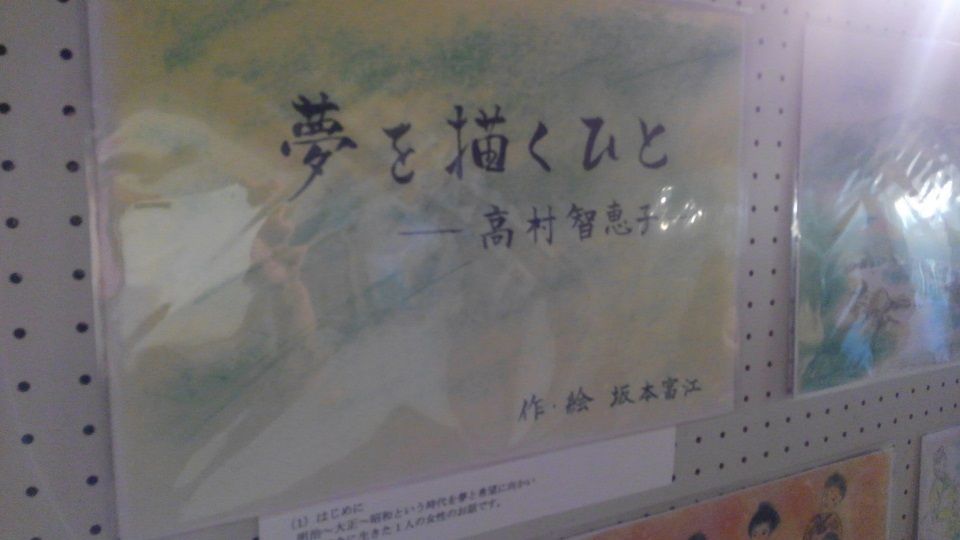 夢を描くひと
― 高村智恵子
作・絵 坂本富江
(1) はじめに
明治～大正～昭和という時代を夢と希望に向かい
に生きた1人の女性のお話です。